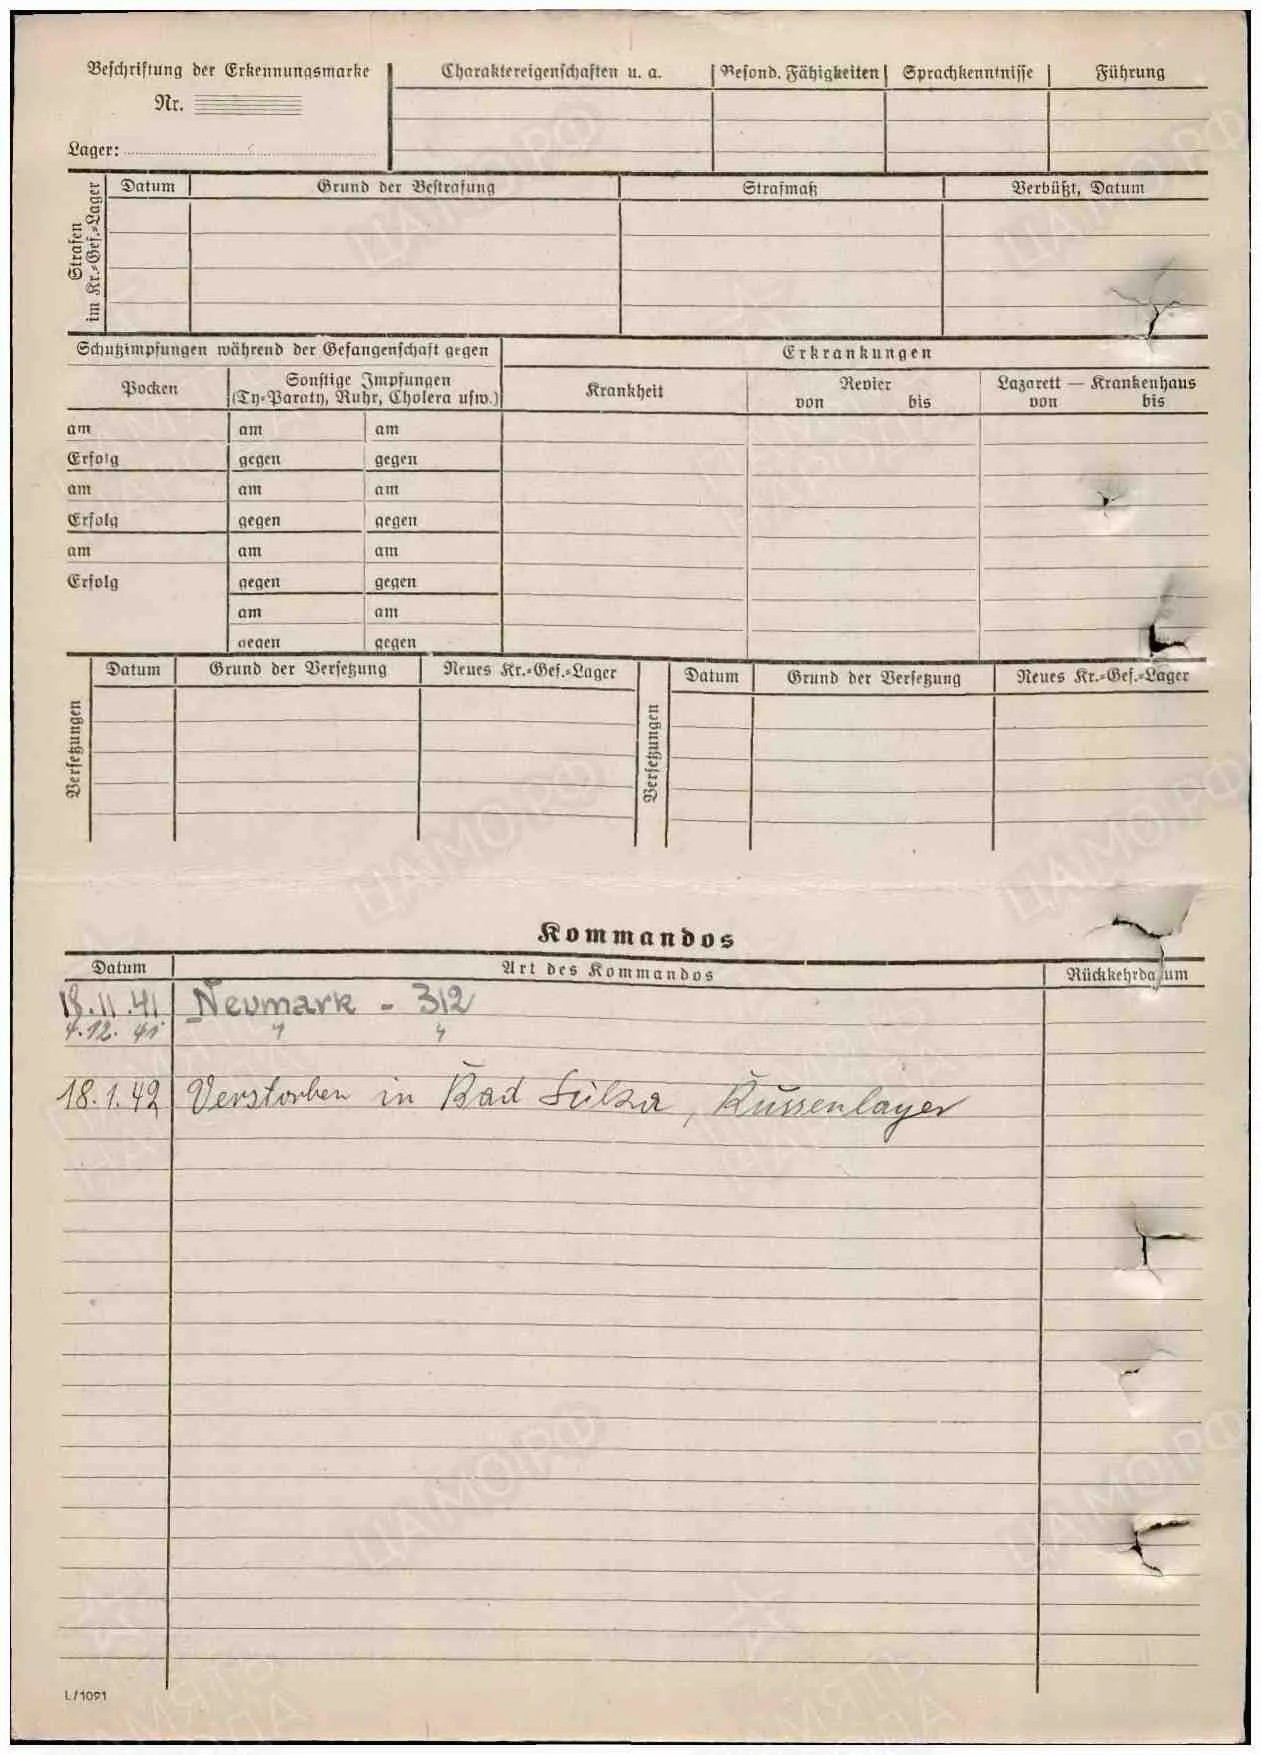 Beschriftung der Erkennungsmarke
Nr.
Lager:
Charaktereigenschaften u. a. Besond. Fähigkeiten Sprachkenntnisse Führung
Strafen
im Kr.=Gef.=Lager
Datum Grund der Bestrafung Strafmaß Verbüßt, Datum
Schutzimpfungen während der Gefangenschaft gegen
Pocken
Sonstige Impfungen
(Ty=Paraty, Ruhr, Cholera usw.)
am am am
Erfolg gegen gegen
am am am
Erfolg gegen gegen
am am am
Erfolg gegen gegen
am am
gegen gegen
Erkrankungen
Krankheit
Revier
von bis
Lazarett — Krankenhaus
von bis
Versetzungen
Datum Grund der Versetzung Neues Kr.=Gef.=Lager
Versetzungen
Datum Grund der Versetzung Neues Kr.=Gef.=Lager
Kommandos
Datum Art des Kommandos Rückkehrdatum
18.11.41 Neumark - 312
4.12.41 " "
18.1.42 Verstorben in Bad Sulza, Russenlager
L/1091
ЦАМО.РФ
ПАМЯТЬ
НАРОДА